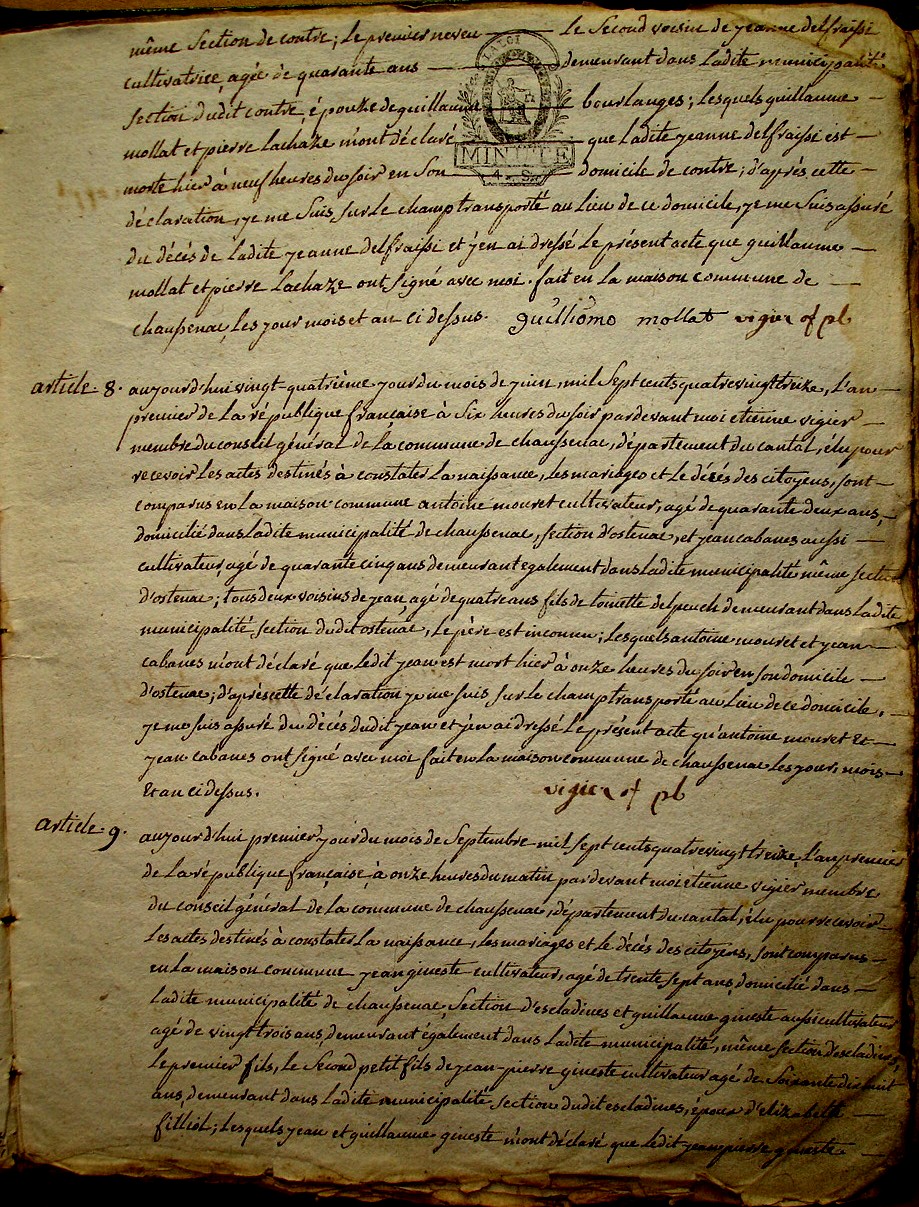 même Section de contre; le premier neveu — le Second voisin de jeanne delfraissi
cultivatrice, agée de quarante ans — demeurant dans ladite municipalité.
Section dudit contre, épouze de guillaume bourlanges; lesquels guillaume —
LA LOI
mollat et pierre lachaze m'ont déclaré — que ladite jeanne delfraissi est —
MINUTE
4. S.
morte hier à neuf heures du soir en Son — domicile de contre; d'après cette —
déclaration, je me Suis, sur le champ transporté au lieu de ce domicile, je me Suis assuré
du décès de ladite jeanne delfraissi et j'en ai dressé le présent acte que guillaume —
mollat et pierre lachaze ont Signé avec moi. fait en la maison commune de —
chaussenac, les jour mois et an ci dessus. guilliomo mollat vigier of pb
article. 8. aujourd'hui vingt-quatrième jour du mois de juin, mil Sept cents quatre vingt treize, l'an —
premier de la république française à Six heures du soir par devant moi etienne vigier —
membre du conseil général de la commune de chaussenac, département du cantal, élu pour
recevoir les actes destinés à constater la naissance, les mariages et le décès des citoyens, sont —
comparus en la maison commune antoine mouret cultivateur, agé de quarante deux ans, —
domicilié dans ladite municipalité de chaussenac, section d'ostenac, et jean cabanes aussi —
cultivateur, agé de quarante cinq ans demeurant egalement dans ladite municipalité même section
d'ostenac; tous deux voisins de jean, agé de quatre ans fils de toinette delpeuch demeurant dans ladite
municipalité, section dudit ostenac, le père est inconnu; lesquels antoine mouret et jean —
cabanes m'ont déclaré que ledit jean est mort hier à onze heures du soir en son domicile —
d'ostenac; d'après cette déclaration je me suis sur le champ transporté au lieu de ce domicile, —
je me suis assuré du décès dudit jean et j'en ai dressé le présent acte qu'antoine mouret Et —
jean cabanes ont signé avec moi fait en la maison commune de chaussenac les jour, mois —
Et an ci dessus. vigier of pb
article. 9. aujourd'hui premier jour du mois de Septembre mil sept cents quatre vingt treize, l'an premier
de la république française, à onze heures du matin par devant moi etienne vigier membre
du conseil général de la commune de chaussenac, département du cantal, élu pour recevoir
les actes destinés à constater la naissance, les mariages et le décès des citoyens, sont comparus —
en la maison commune jean gineste cultivateur, agé de trente sept ans, domicilié dans —
ladite municipalité de chaussenac, Section d'escladines et guillaume gineste aussi cultivateur
agé de vingt trois ans, demeurant également dans ladite municipalité, même section d'escladines,
le premier fils, le Second petit fils de jean-pierre gineste cultivateur agé de Soixante dix huit
ans, demeurant dans ladite municipalité Section dudit escladines, époux d'elizabeth —
filliol; lesquels jean et guillaume gineste m'ont déclaré que ledit jean pierre gineste —